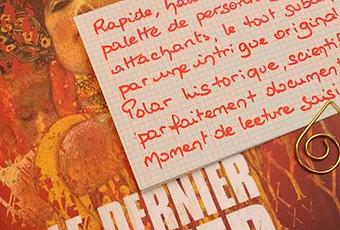 Rapide,
palette de
attachants, le tout
par une intrigue original
Polar historique, scienti
parfaitement document
Moment de lecture saisi
LE DERNIER